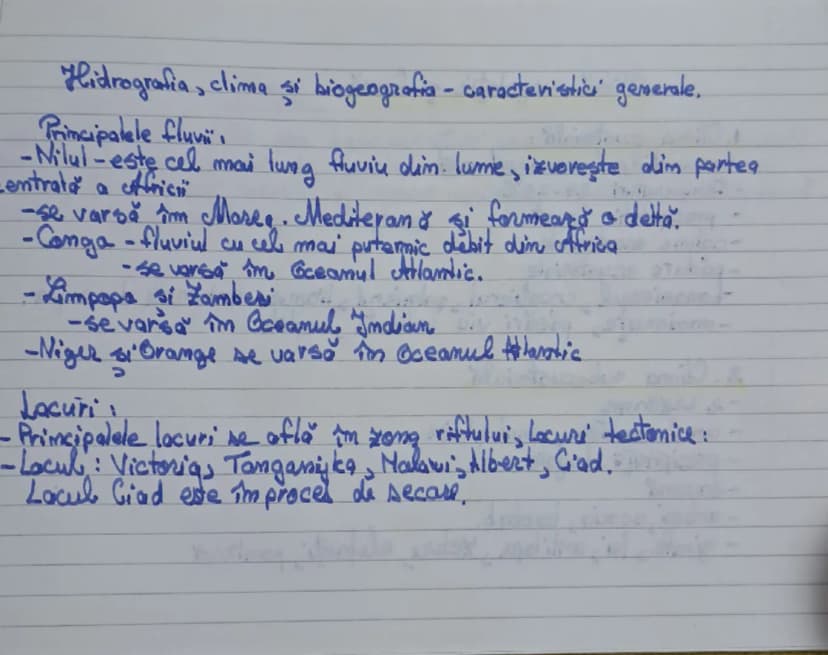 Hidrografia, clima și biogeografia - caracteristici generale.
Principalele fluvii:
- Nilul - este cel mai lung fluviu din lume, izvorește din partea
centrală a Africii
- se varsă în Marea Mediterană și formează o deltă.
- Congo - fluviul cu cel mai puternic debit din Africa
- se varsă în Oceanul Atlantic.
- Limpopo și Zambezi
- se varsă în Oceanul Indian
- Niger și Orange se varsă în Oceanul Atlantic
Lacuri:
- Principalele lacuri se află în zona riftului, lacuri tectonice:
- Lacul: Victoria, Tanganyka, Malawi, Albert, Ciad.
Lacul Ciad este în proces de secare.